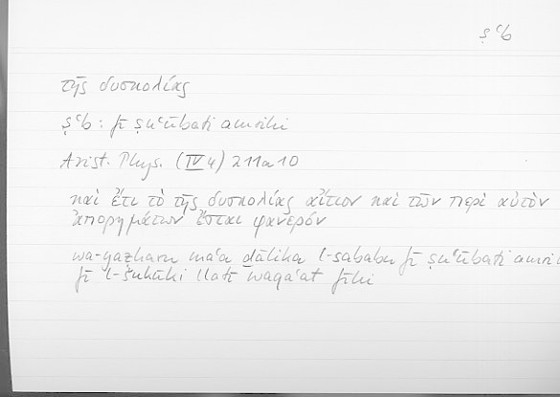 ṣʿb
τῆς δυσκολίας
ṣʿb: fī ṣuʿūbati amrihi
Arist. Phys. (IV 4) 211a10
καὶ ἔτι τὸ τῆς δυσκολίας αἴτιον καὶ τῶν περὶ αὐτὸν
ἀπορημάτων ἔσται φανερόν
wa-yaẓharu maʿa ḏālika l-sababu fī ṣuʿūbati amrihi
fī l-šukūki llatī waqaʿat fīhi